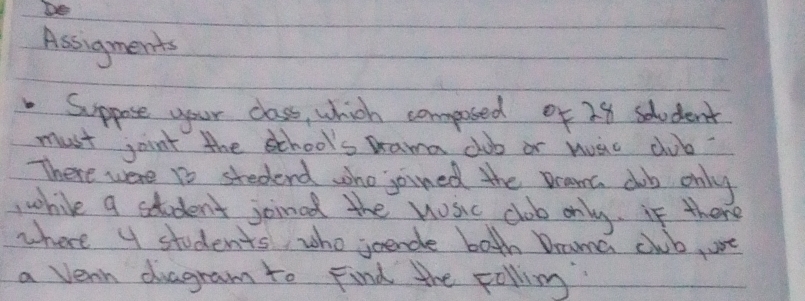 De
Assigments
Suppose your class, which composed of 28 student
must joint the school's Drama club or Music club
There were 13 stederd who joined the Drama club only
, while 9 student joined the Music club only. if there
where 4 students who joende both Drama club, use
a Venn diagram to Find the Folling: